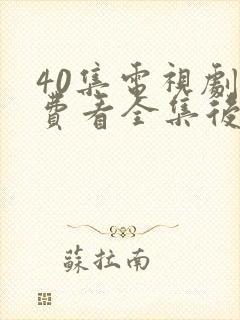 40集電視劇
費看全集後
蘇拉南